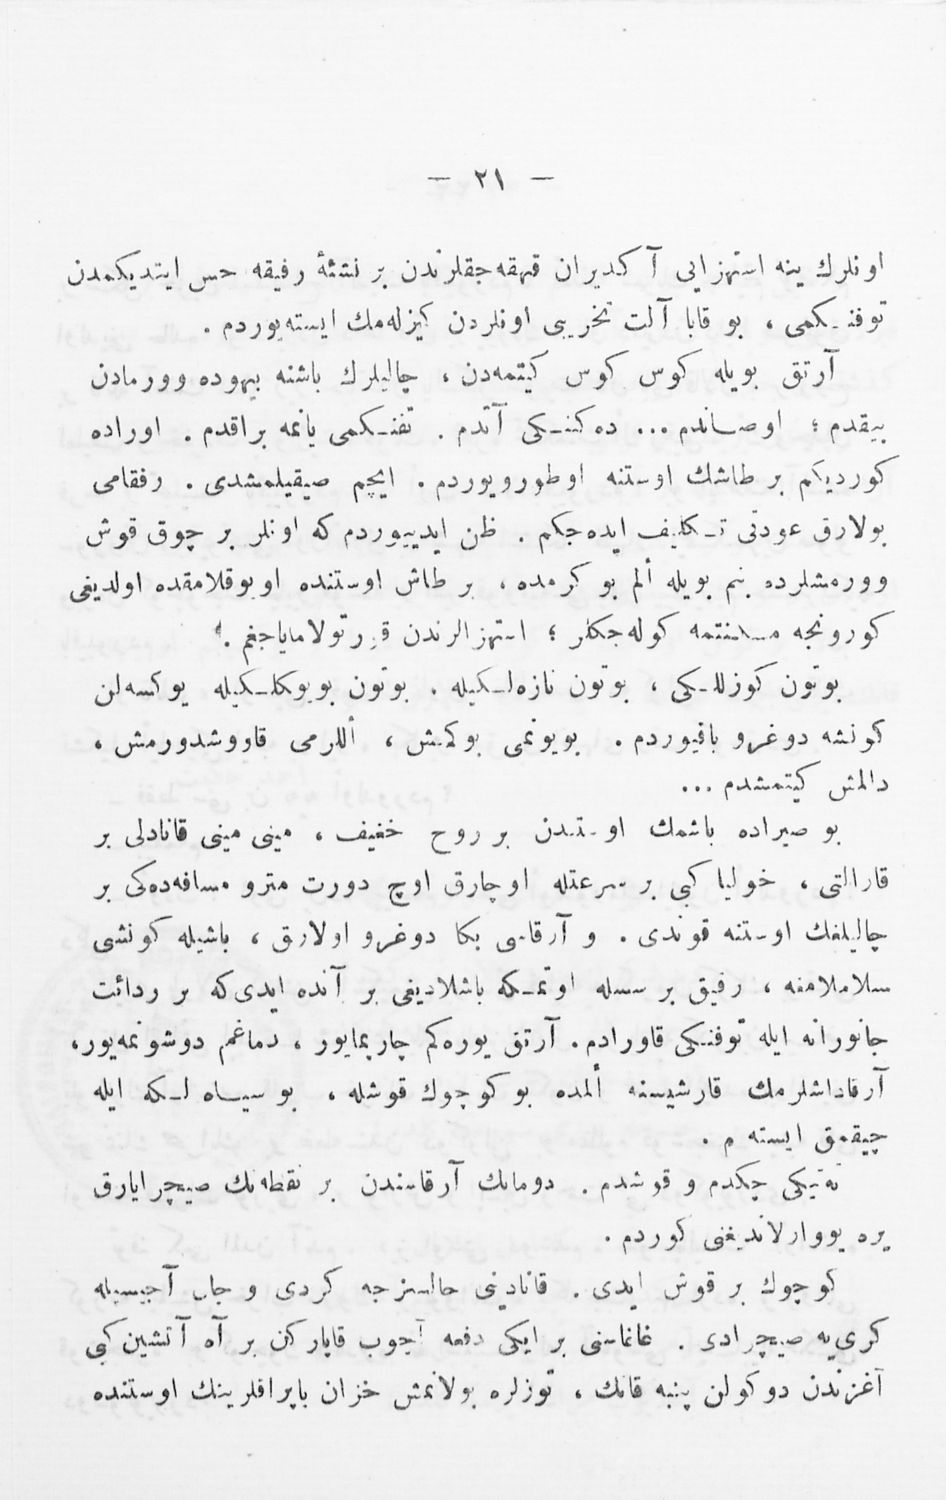 — ٢١ —
اونلرك ينه استهزايى آكديران قهقه‌جقلرندن بر نشئهٔ رفيقه حس ايتديكمدن
توفنـكمى ، بو قابا آلت تخريبى اونلردن كيزله‌مك ايسته‌يوردم .
آرتق بويله كوس كوس كيتمه‌دن ، چاليلرك باشنه بيهوده وورمادن
بيقدم ؛ اوصـاندم ... ده‌كنـكى آتدم . تفنـكمى يانمه براقدم . اوراده
كورديكم بر طاشك اوستنه اوطورويوردم . ايچم صيقيلمشدى . رفقامى
بولارق عودتى تـكليف ايده‌جكم . ظن ايدييوردم كه اونلر بر چوق قوش
وورمشلرده بنم بويله ألم بو كرمده ، بر طاش اوستنده اويوقلامقده اولديغى
كورونجه مسكنتمه كوله‌جكلر ؛ استهزالرندن قورتولاماياجغم .
بوتون كوزللـكى ، بوتون نازه‌لـكيله . بوتون بويوكلـكيله يوكسه‌لن
كونشه دوغرو باقيوردم . بويونمى بوكمش ، أللرمى قاووشدورمش ،
دالمش كيتمشدم ...
بو صيراده باشمك اوستندن بر روح خفيف ، مينى مينى قانادلى بر
قارالتى ، خوليا كبى بر سرعتله اوچارق اوچ دورت مترو مسافه‌ده‌كى بر
چاليلغك اوستنه قوندى . و آرقاسى بكا دوغرو اولارق ، باشيله كونشى
سلاملامغه ، رفيق بر سسله اوتمـكه باشلاديغى بر آنده ايدى‌كه بر ردائت
جانورانه ايله توفنـكى قاورادم . آرتق يوره‌كم چارپمايور ، دماغم دوشونمه‌يور،
آرقاداشلرمك قارشيسنه ألمده بو كوچوك قوشله ، بو سيـاه لـكه ايله
چيقمق ايسته‌رم .
ته‌تيكى چكدم و قوشدم . دومانك آرقاسندن بر نقطه‌نك صيچرايارق
يره يووارلانديغنى كوردم .
كوچوك بر قوش ايدى . قانادينى حالسزجه كردى و جان آجيسيله
كرى‌يه صيچرادى . غاغاسنى بر ايكى دفعه آچوب قاپاركن بر آه آتشين كبى
آغزندن دوكولن پنبه قانك ، توزلره بولانمش خزان ياپراقلرينك اوستنده